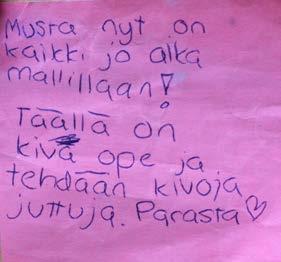 Musta nyt on
kaikki jo aika
mallillaan!
Täällä on
kivä ope ja
tehdään kivoja
juttuja. Parasta♡